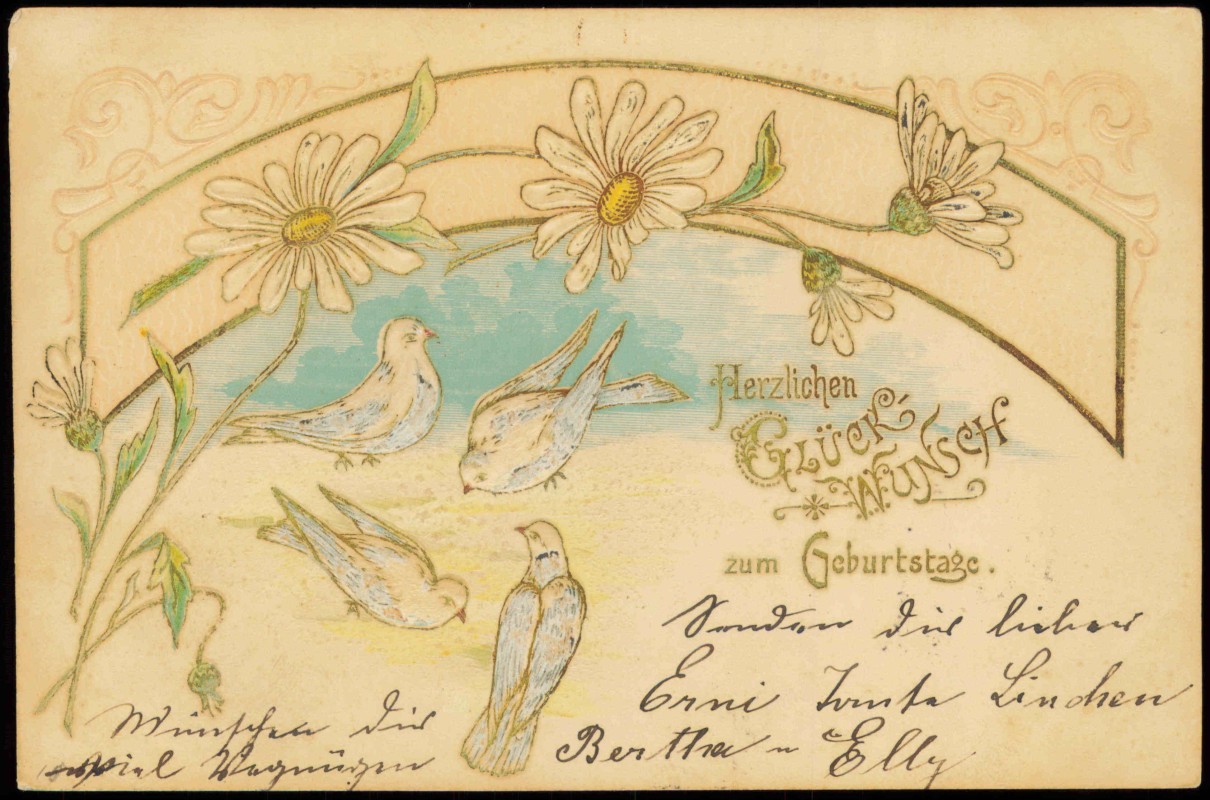 Herzlichen
GLÜCK-
WUNSCH
zum Geburtstage.
Senden dir lieber
Erni Tante Linchen
Bertha u Elly
Wünschen dir
viel Vegnügen